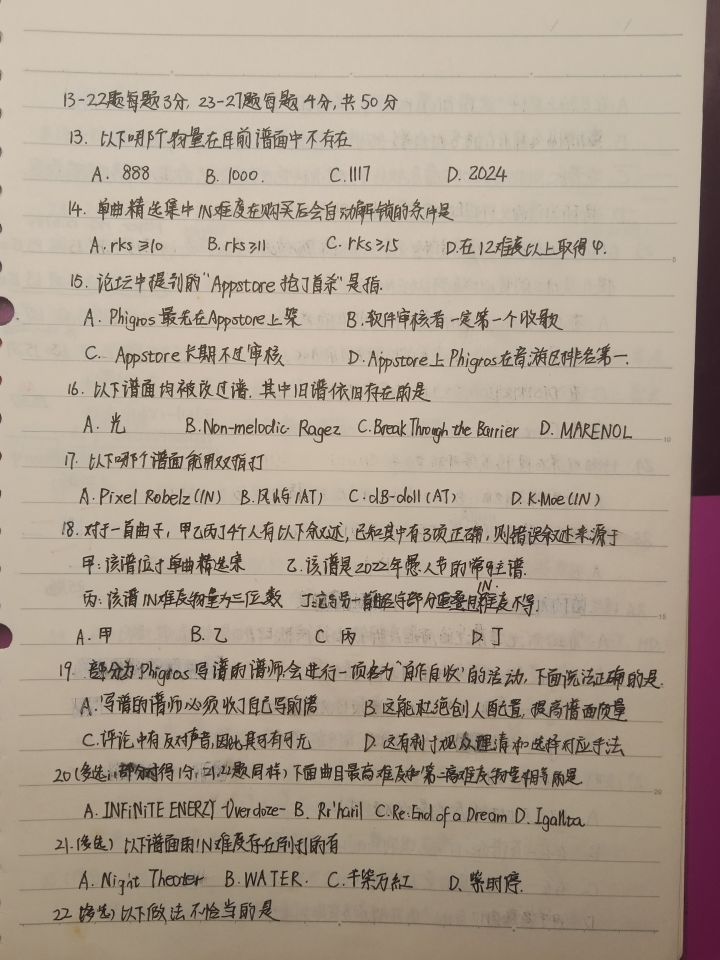 13-22题每题3分, 23-27题每题4分, 共50分
13. 以下哪个物量在目前谱面中不存在
A. 888 B. 1000. C. 1117 D. 2024
14. 单曲精选集中IN难度在购买后会自动解锁的条件是
A. rks≥10 B. rks≥11 C. rks≥15 D. 在12难度以上取得φ.
15. 论坛中提到的"Appstore抢了首杀"是指.
A. Phigros最先在Appstore上架 B. 软件审核者一定第一个收歌
C. Appstore长期不过审核 D. Appstore上Phigros在音游区排名第一.
16. 以下谱面均被改过谱. 其中旧谱依旧存在的是
A. 光 B. Non-melodic Ragez C. Break Through the Barrier D. MARENOL
17. 以下哪个谱面能用双指打
A. Pixel Rebelz (IN) B. 风屿 (AT) C. dB-doll (AT) D. K.Moe (IN)
18. 对于一首曲子, 甲乙丙丁4个人有以下叙述, 已知其中有3项正确, 则错误叙述来源于
甲: 该谱位于单曲精选集 乙. 该谱是2022年愚人节的常驻谱.
丙: 该谱IN难度物量为三位数 丁: 它与另一首曲名字部分重叠且IN难度不同.
A. 甲 B. 乙 C 丙 D. 丁
19. 部分为Phigros写谱的谱师会进行一项名为"自作自收"的活动, 下面说法正确的是.
A. 写谱的谱师必须收了自己写的谱 B. 这能杜绝创人配置, 提高谱面质量
C. 评论中有反对声音, 因此其可有可无 D. 这有利于观众理清和选择对应手法
20 (多选: 部分对得1分, 21,22题同样) 下面曲目最高难度和第二高难度物量相等的是
A. INFiNiTE ENERZY -Overdoze- B. Rr'haril C. Re: End of a Dream D. Igallta
21. (多选) 以下谱面的IN难度存在所列的有
A. Night Theater B. WATER. C. 千柒万紅 D. 柒时停.
22 (多选) 以下做法不恰当的是